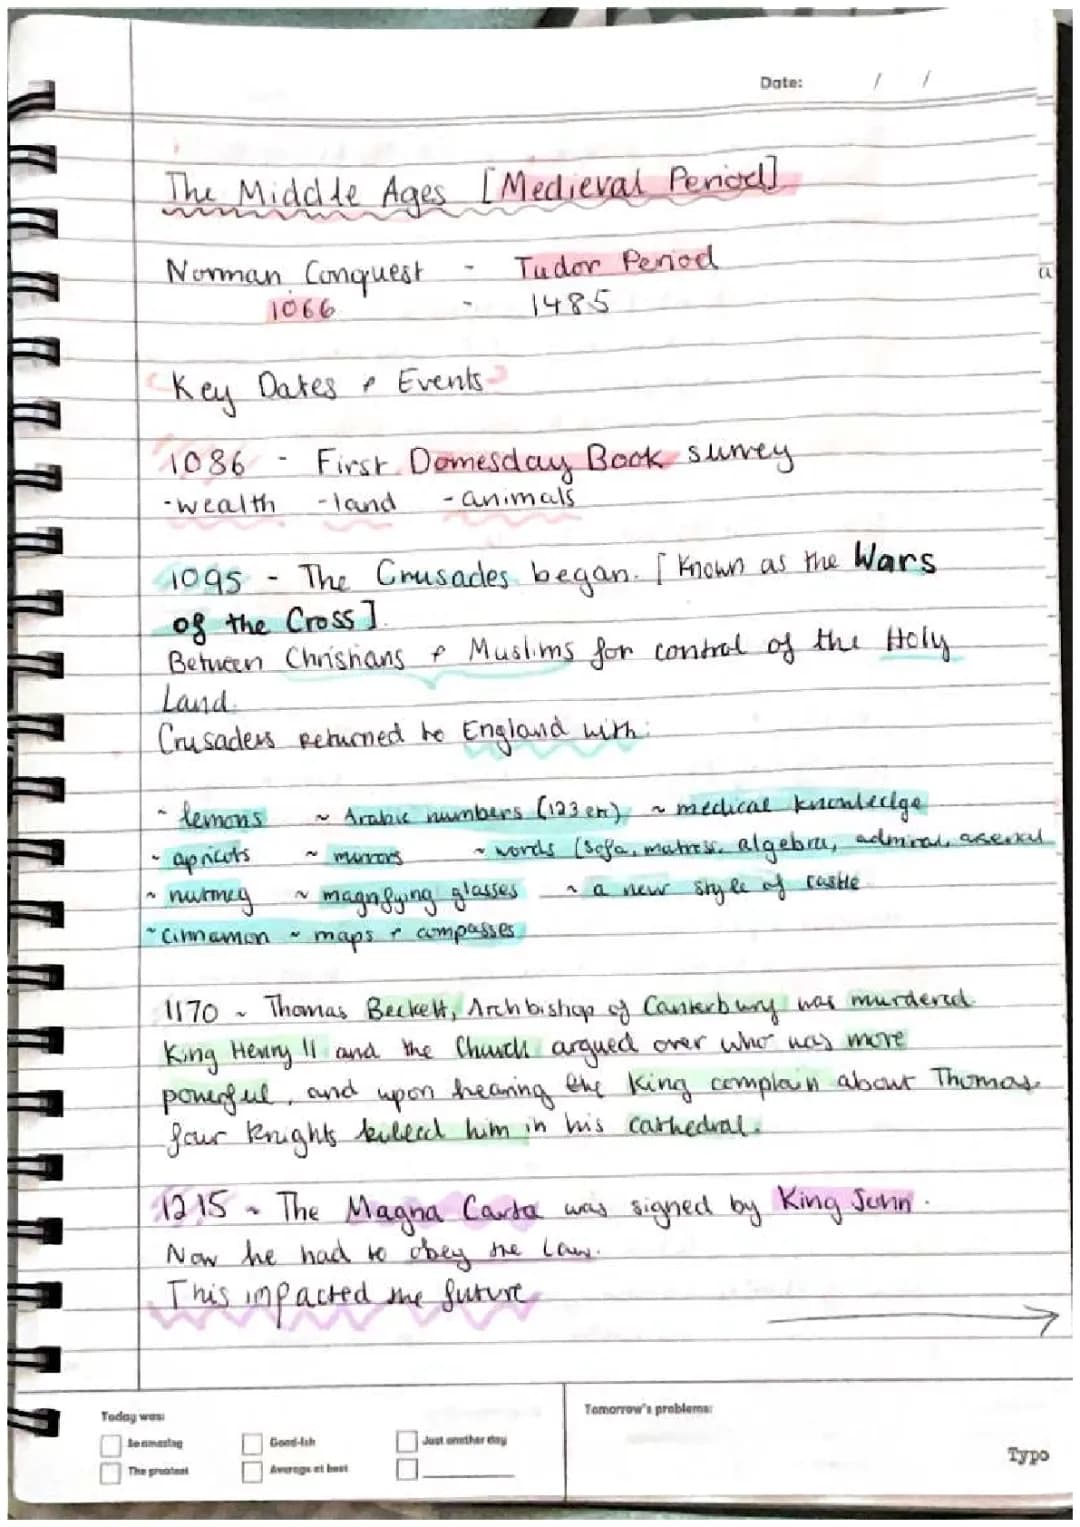 Date: / /
The Middle Ages [Medieval Period]
Norman Conquest - Tudor Period
1066 - 1485
Key Dates & Events
1086 - First Domesday Book survey
-wealth -land -animals
1095 - The Crusades began. [Known as the Wars
of the Cross].
Between Christians & Muslims for control of the Holy
Land.
Crusaders returned to England with:
~ lemons ~ Arabic numbers (123 etc) ~ medical knowledge
~ apricots ~ mirrors ~ words (sofa, matress, algebra, admiral, arsenal
~ nutmeg ~ magnifying glasses ~ a new style of castle
~ cinnamon ~ maps & compasses
1170 ~ Thomas Beckett, Archbishop of Canterbury was murdered.
King Henry II and the Church argued over who was more
powerful, and upon hearing the King complain about Thomas
four knights killed him in his cathedral.
1215 ~ The Magna Carta was signed by King John.
Now he had to obey the law.
This impacted the future
Today was:
So amazing
Good-ish
Just another day
The greatest
Average at best
Tomorrow's problems:
Typo